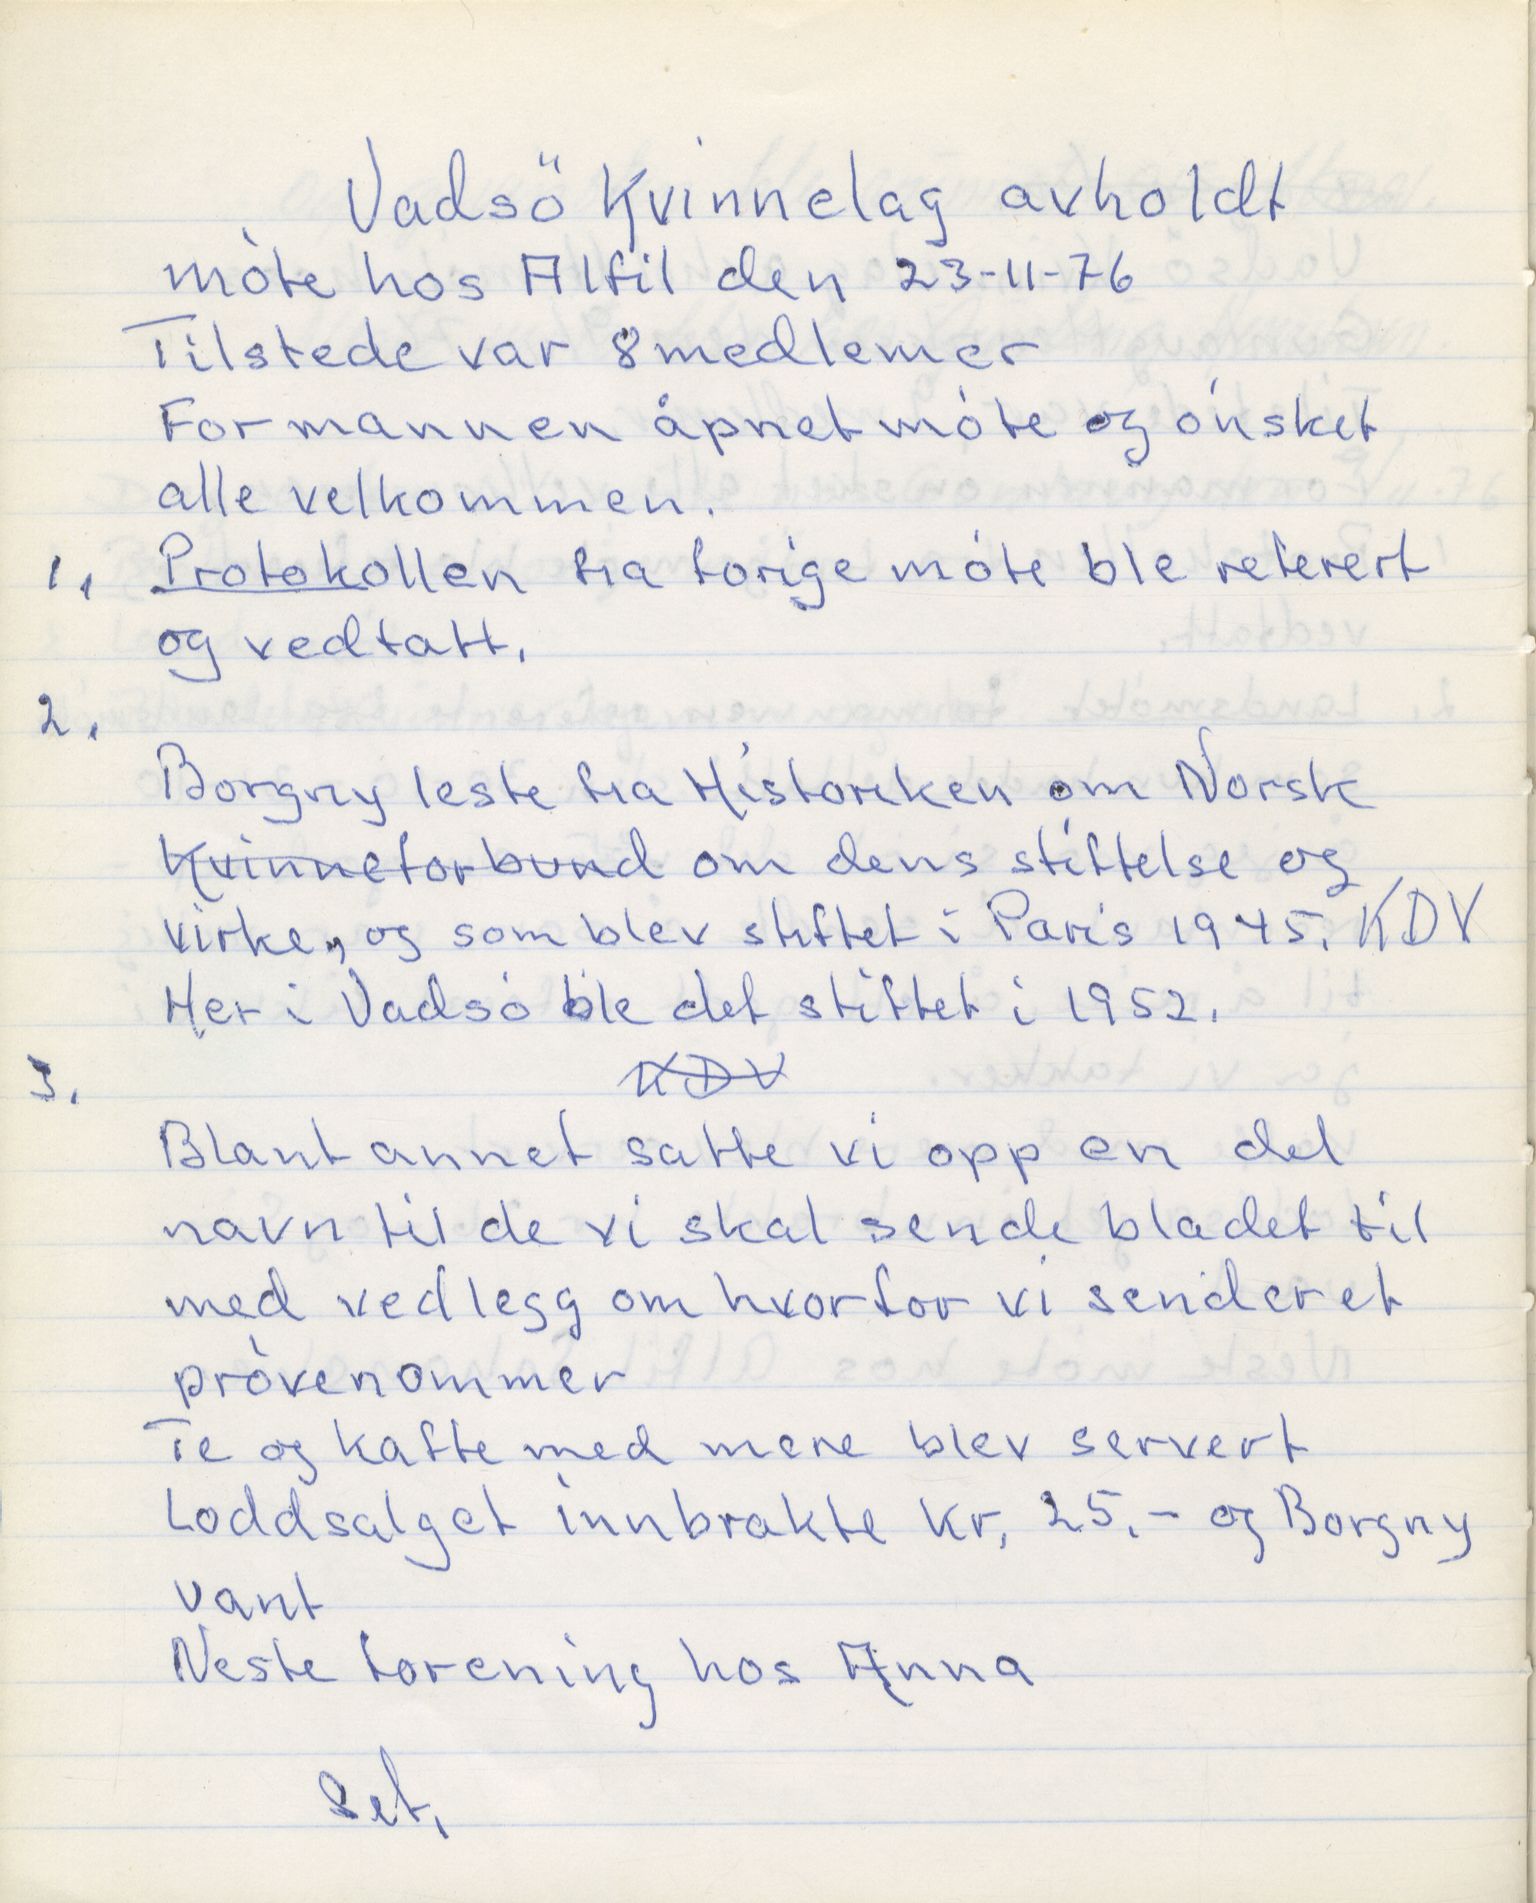 Vadsö Kvinnelag avholdt
móte hos Alfil den 23-11-76
Tilstede var 8 medlemer
Formannen åpnet móte og ónsket
alle velkommen.
1. Protokollen fra forige móte ble referert
og vedtatt.
2.
Borgny leste fra Historiken om Norsk
Kvinneforbund om dens stiftelse og
virke, og som blev stiftet i Paris 1945. KDV
Her i Vadsó ble det stiftet i 1952.
3. KDV
Blant annet satte vi opp en del
navn til de vi skal sende bladet til
med vedlegg om hvorfor vi sender et
próvenommer
Te og kaffe med mere blev servert
Loddsalget innbrakte kr. 25.- og Borgny
vant
Neste forening hos Anna